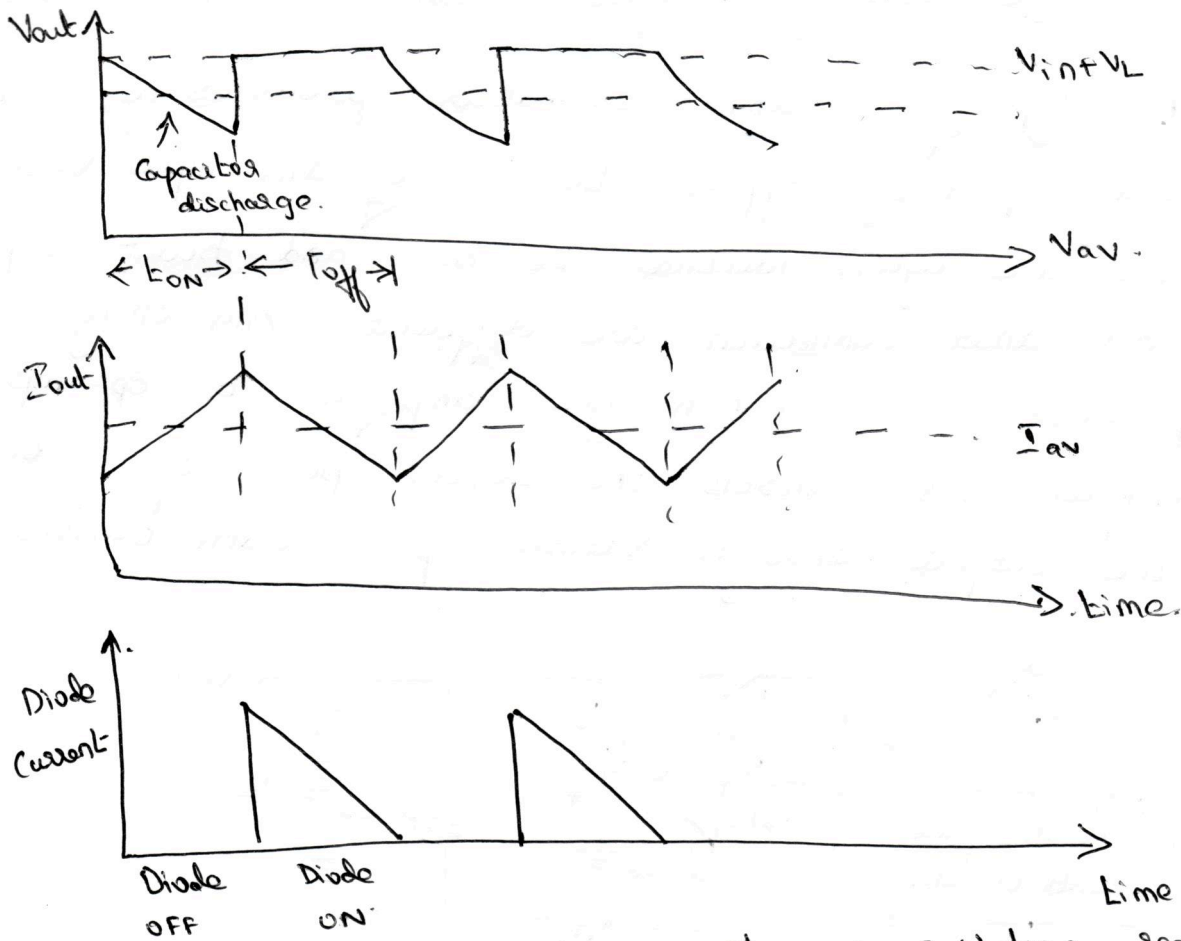 Vout
Vin+VL
Capacitor
discharge.
Vav.
← tON → ← Toff →
Iout
Iav
time.
Diode
Current
Diode
OFF
Diode
ON
time